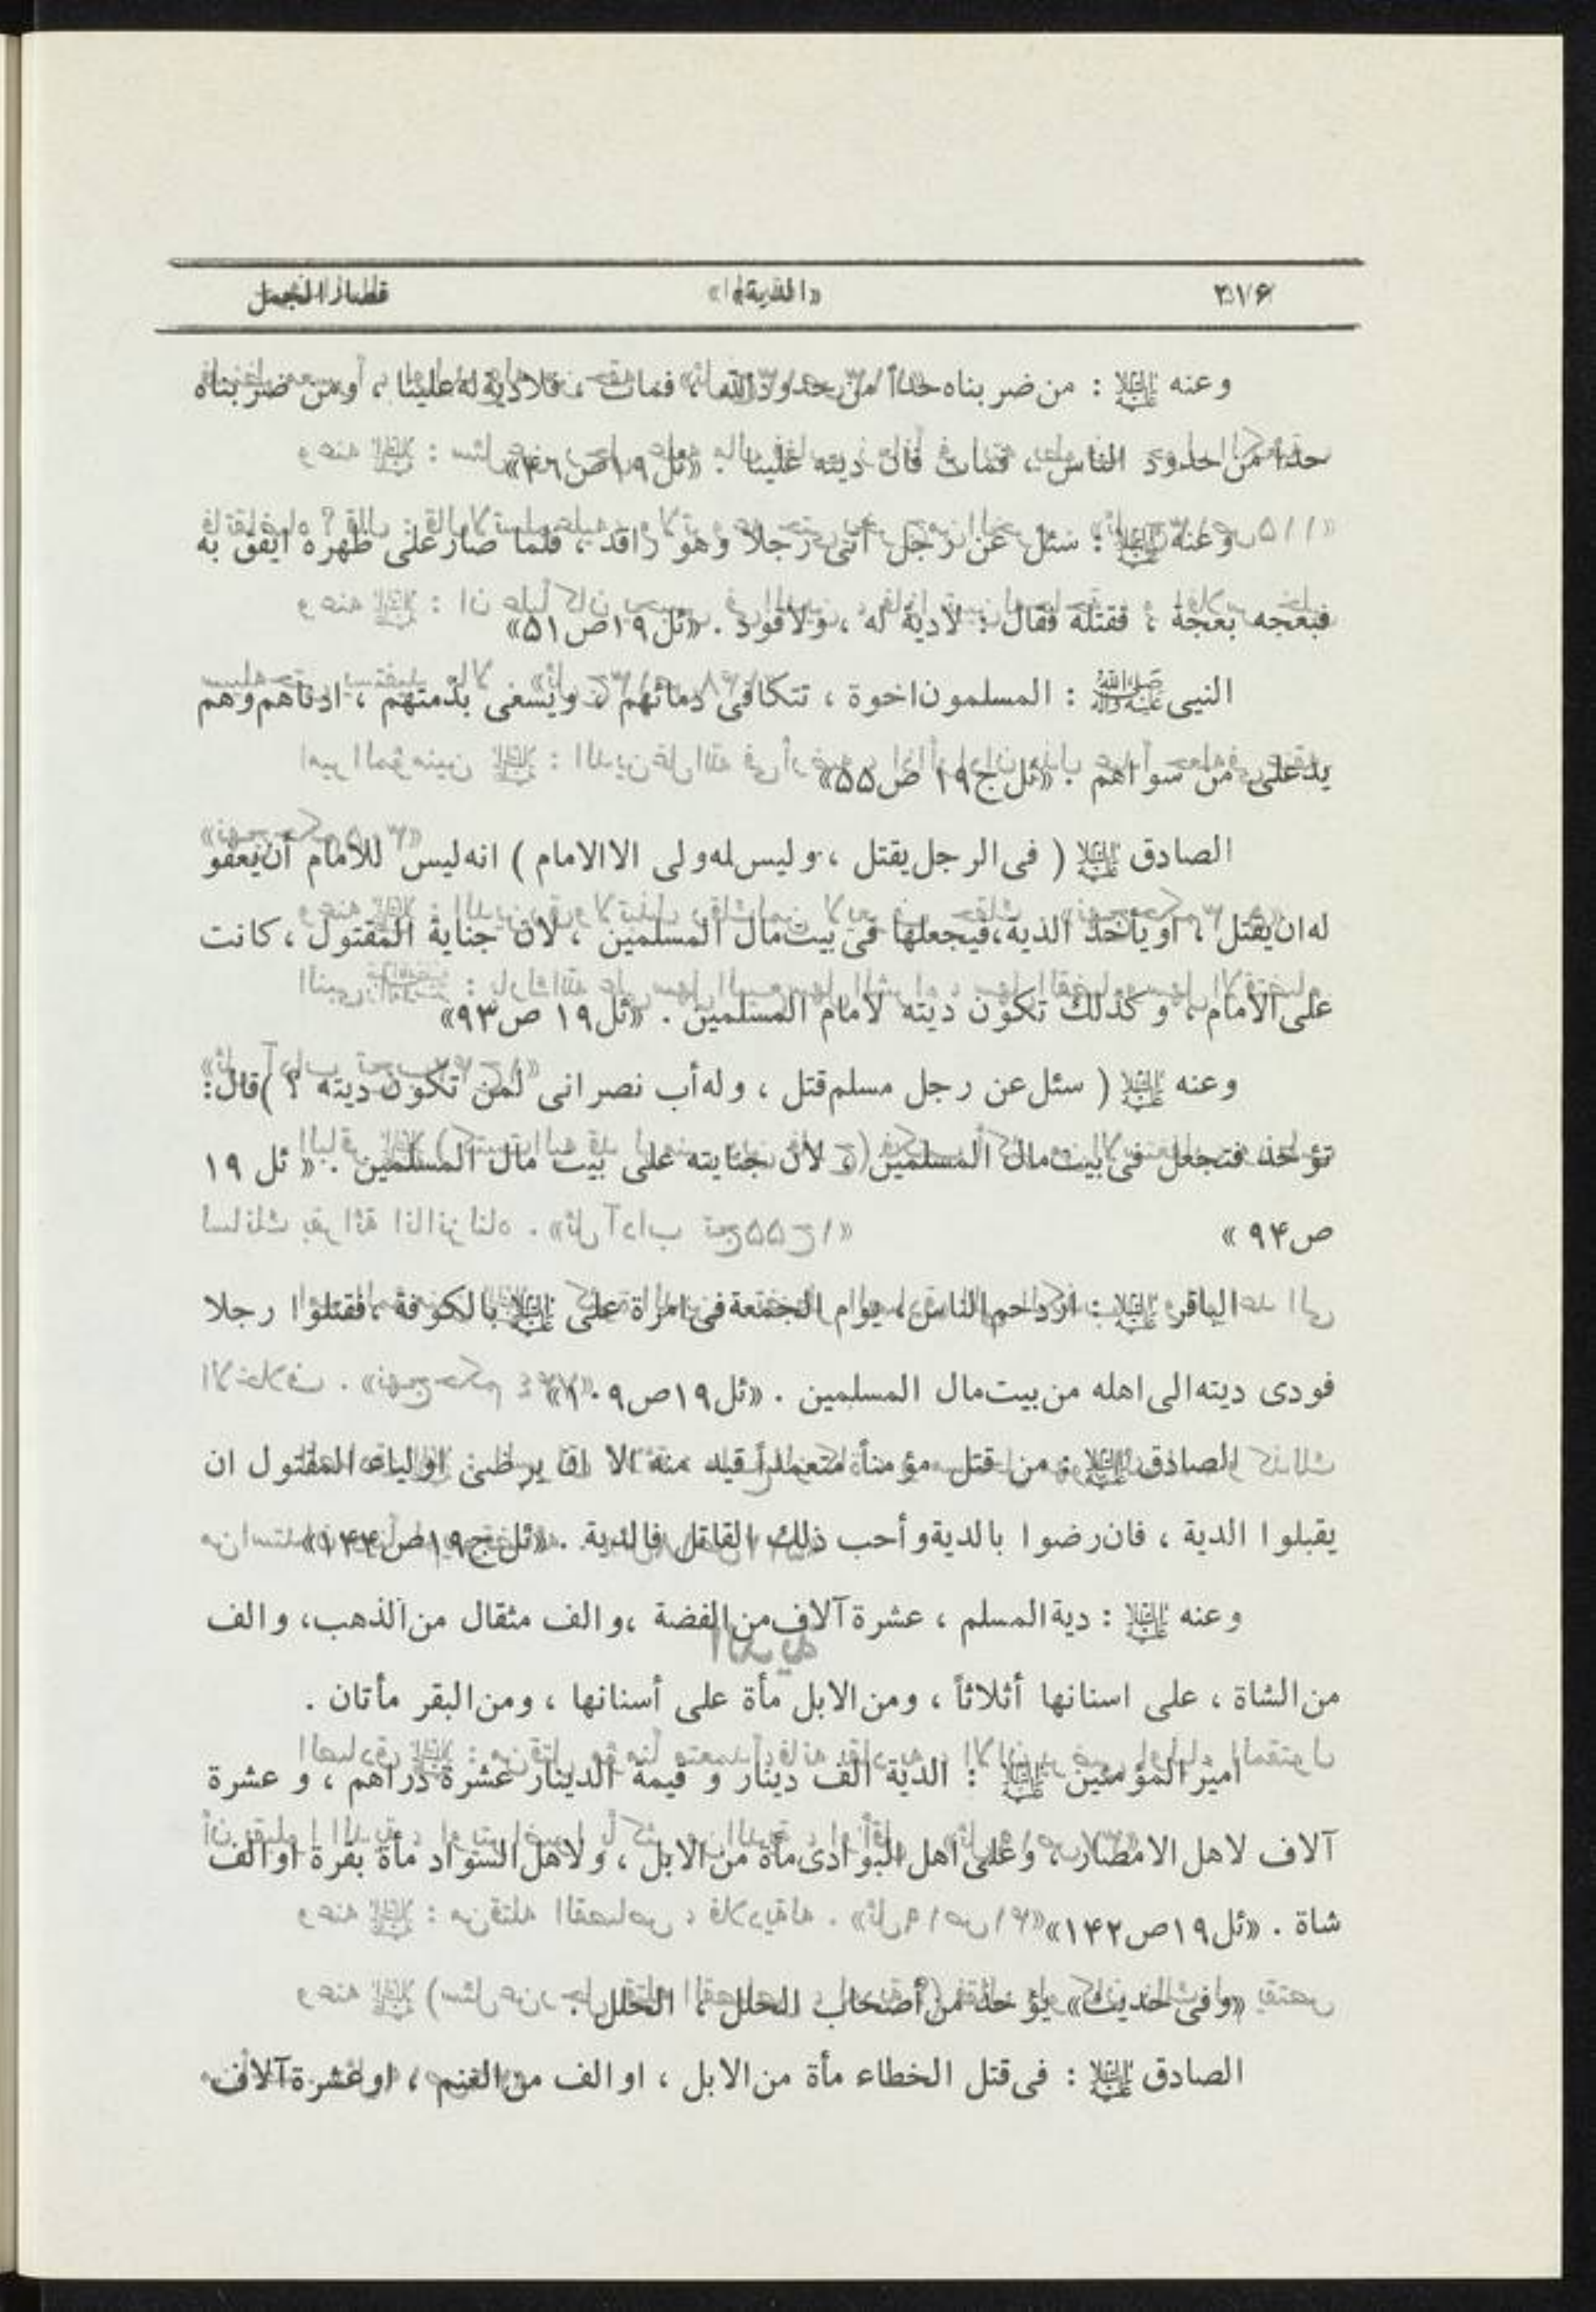 ۲۱۶ «الدية» قصار الجمل
وعنه عليه السلام : من ضربناه حداً من حدود الله ، فمات ، فلا دية له علينا ، ومن ضربناه
حداً من حدود الناس ، فمات فان ديته علينا . «ئل ۱۹ ص ۴۶»
وعنه عليه السلام : سئل عن رجل اتى رجلا وهو راقد ، فلما صار على ظهره ايقن به
فبعجه بعجة ، فقتله فقال : لادية له ، ولاقود . «ئل ۱۹ ص ۵۱»
النبى صلى الله عليه وآله : المسلمون اخوة ، تتكافى دمائهم ، ويسعى بذمتهم ، ادناهم وهم
يد على من سواهم . «ئل ج ۱۹ ص ۵۵»
الصادق عليه السلام ( فى الرجل يقتل ، وليس له ولى الا الامام ) انه ليس للامام أن يعفو
له ان يقتل ، او يأخذ الدية ، فيجعلها فى بيت مال المسلمين ، لان جناية المقتول ، كانت
على الامام ، وكذلك تكون ديته لامام المسلمين . «ئل ۱۹ ص ۹۳»
وعنه عليه السلام ( سئل عن رجل مسلم قتل ، وله أب نصرانى لمن تكون ديته ؟ ) قال :
تؤخذ فتجعل فى بيت مال المسلمين ، لان جنايته على بيت مال المسلمين . « ئل ۱۹
ص ۹۴ »
الباقر عليه السلام : ازدحم الناس ، يوم الجمعة فى امرة على عليه السلام بالكوفة ، فقتلوا رجلا
فودى ديته الى اهله من بيت مال المسلمين . «ئل ۱۹ ص ۱۰۹»
الصادق عليه السلام : من قتل مؤمناً متعمداً قيد منه الا ان يرضى اولياء المقتول ان
يقبلوا الدية ، فان رضوا بالدية وأحب ذلك القاتل فالدية . «ئل ج ۱۹ ص ۱۴۴»
وعنه عليه السلام : دية المسلم ، عشرة آلاف من الفضة ، والف مثقال من الذهب ، والف
من الشاة ، على اسنانها أثلاثاً ، ومن الابل مأة على أسنانها ، ومن البقر مأتان .
امير المؤمنين عليه السلام : الدية الف دينار و قيمة الدينار عشرة دراهم ، و عشرة
آلاف لاهل الامصار ، وعلى اهل البوادى مأة من الابل ، ولاهل السواد مأة بقرة او الف
شاة . «ئل ۱۹ ص ۱۴۲»
«وفى حديث» يؤخذ من أصحاب الحلل ، الحلل .
الصادق عليه السلام : فى قتل الخطاء مأة من الابل ، او الف من الغنم ، او عشرة آلاف